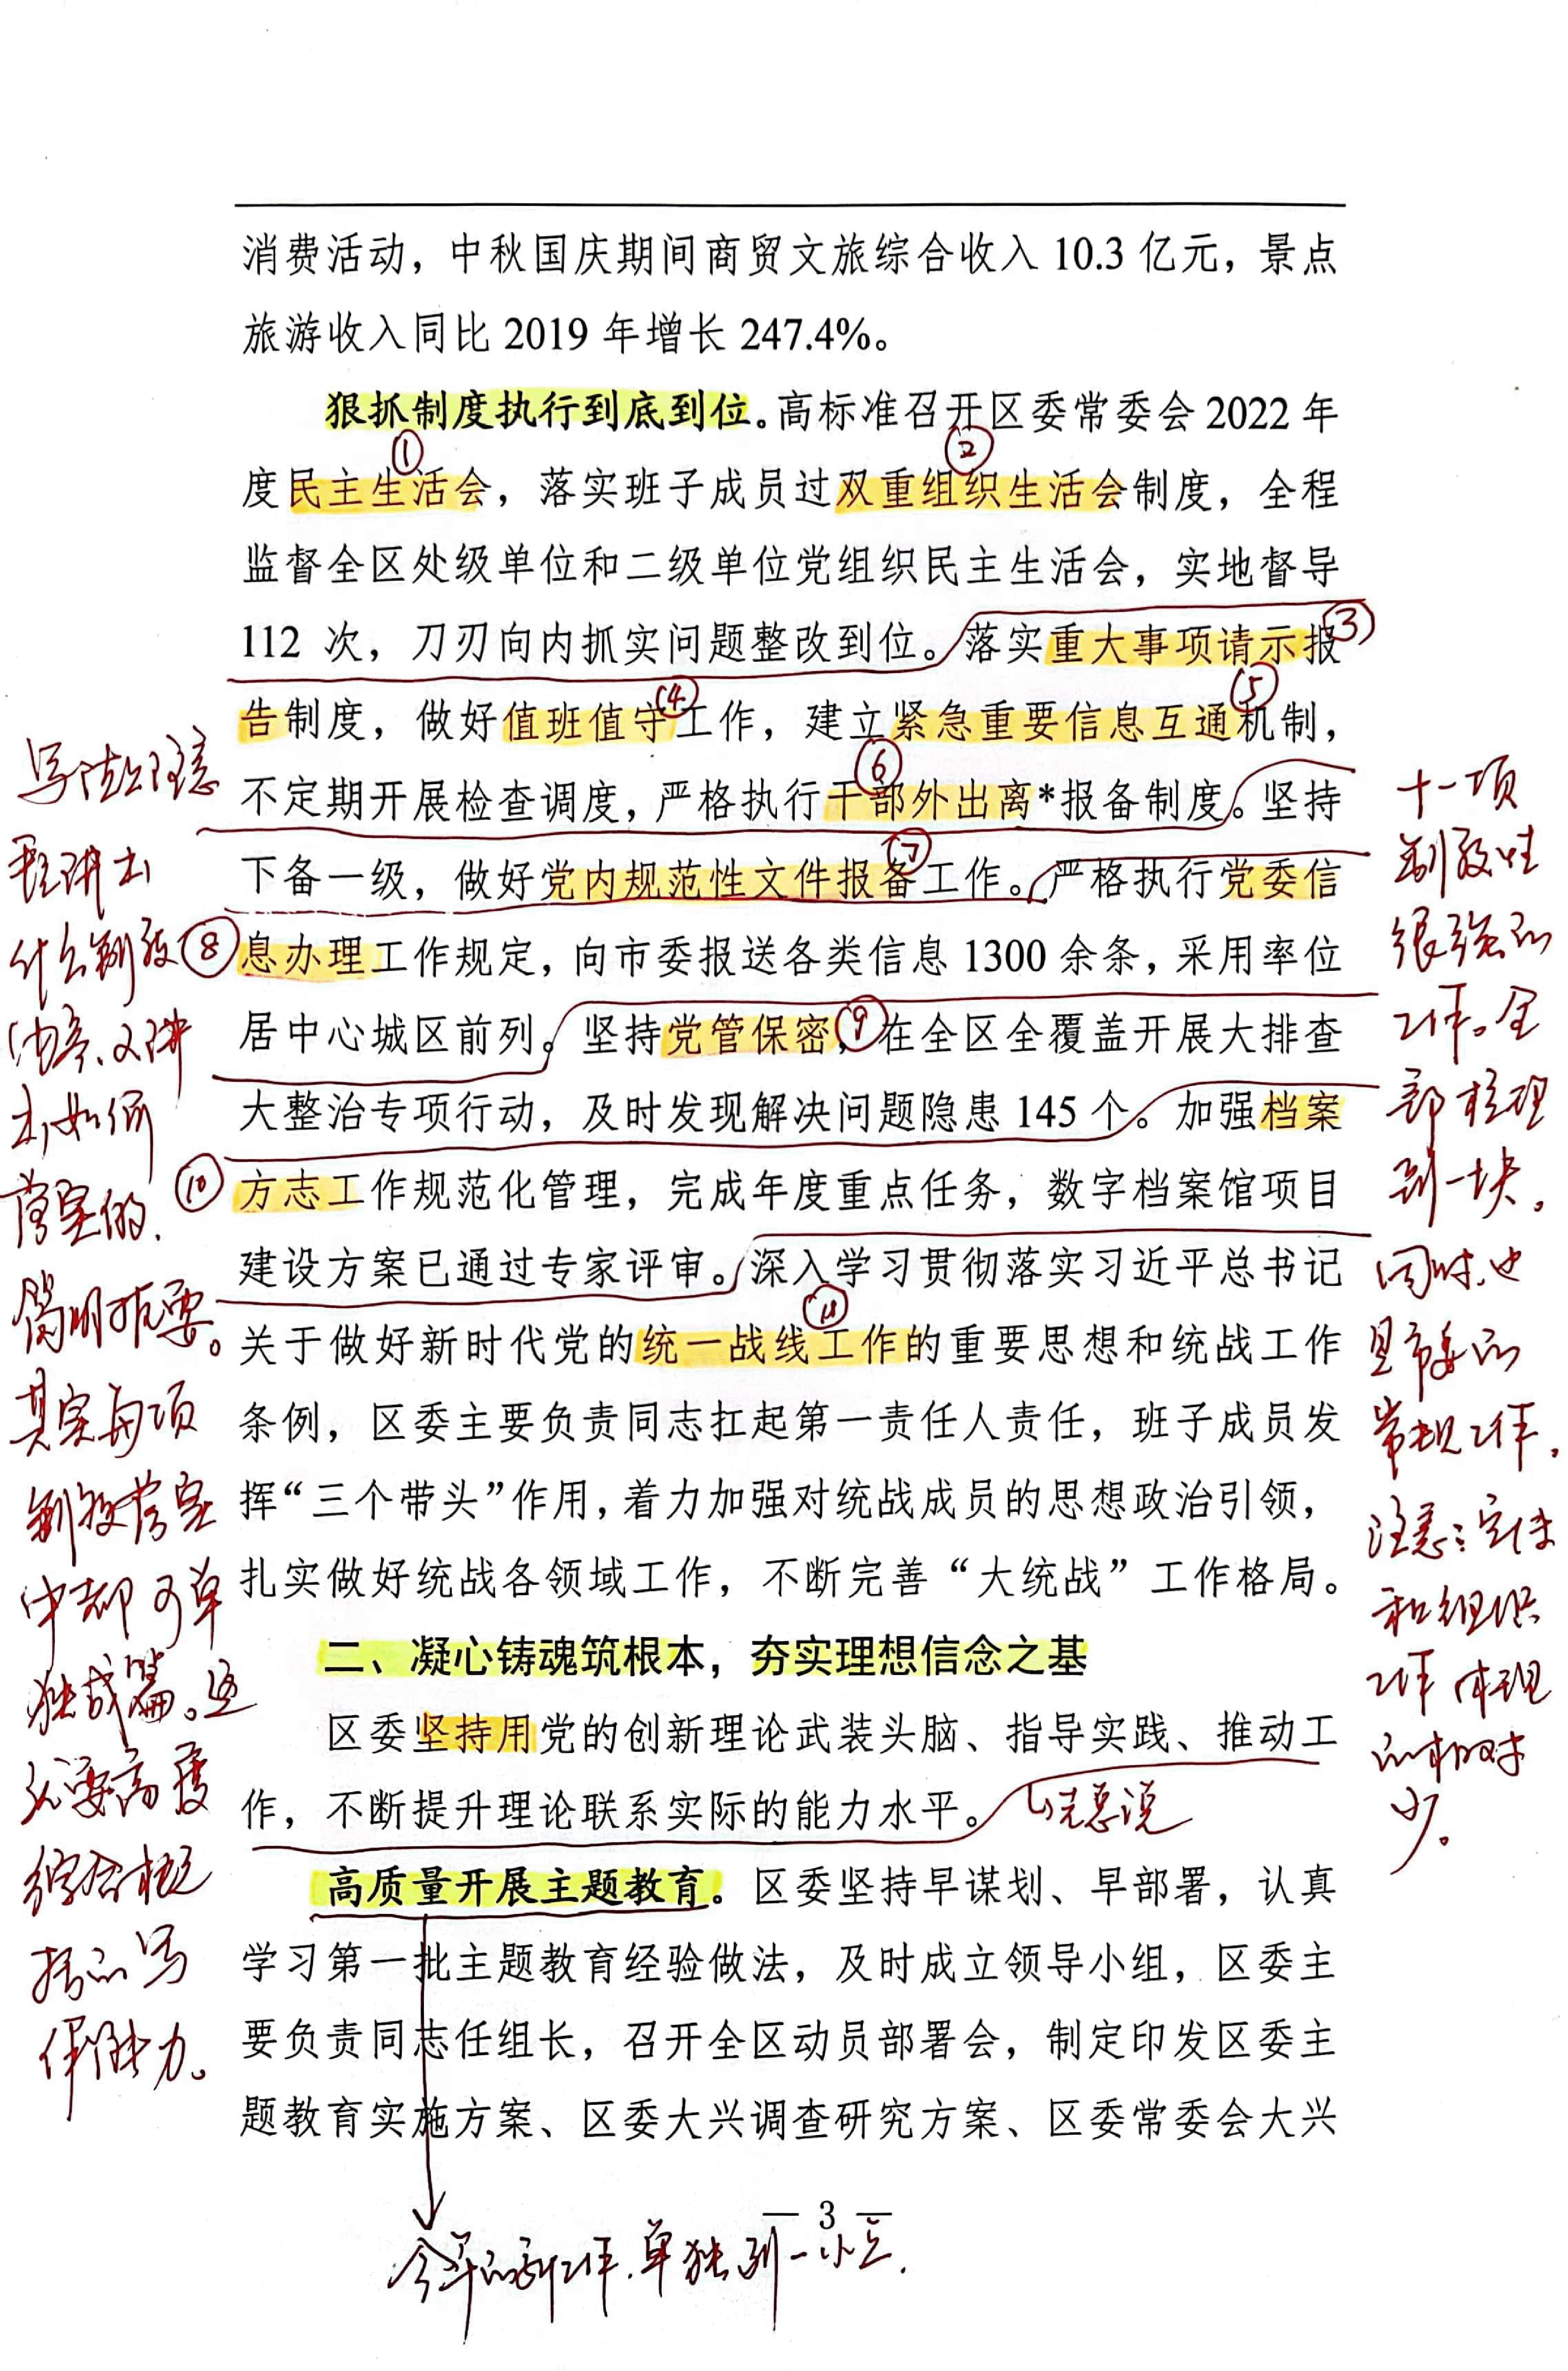 消费活动，中秋国庆期间商贸文旅综合收入 10.3 亿元，景点
旅游收入同比 2019 年增长 247.4%。
狠抓制度执行到底到位。高标准召开区委常委会 2022 年
①
②
度民主生活会，落实班子成员过双重组织生活会制度，全程
监督全区处级单位和二级单位党组织民主生活会，实地督导
112 次，刀刃向内抓实问题整改到位。落实重大事项请示报
③
④
⑤
告制度，做好值班值守工作，建立紧急重要信息互通机制，
⑥
不定期开展检查调度，严格执行干部外出离*报备制度。坚持
⑦
下备一级，做好党内规范性文件报备工作。严格执行党委信
⑧
息办理工作规定，向市委报送各类信息 1300 余条，采用率位
居中心城区前列。坚持党管保密，在全区全覆盖开展大排查
⑨
大整治专项行动，及时发现解决问题隐患 145 个。加强档案
⑩
方志工作规范化管理，完成年度重点任务，数字档案馆项目
建设方案已通过专家评审。深入学习贯彻落实习近平总书记
⑪
关于做好新时代党的统一战线工作的重要思想和统战工作
条例，区委主要负责同志扛起第一责任人责任，班子成员发
挥“三个带头”作用，着力加强对统战成员的思想政治引领，
扎实做好统战各领域工作，不断完善“大统战”工作格局。
二、凝心铸魂筑根本，夯实理想信念之基
区委坚持用党的创新理论武装头脑、指导实践、推动工
作，不断提升理论联系实际的能力水平。
先总说
高质量开展主题教育。区委坚持早谋划、早部署，认真
学习第一批主题教育经验做法，及时成立领导小组，区委主
要负责同志任组长，召开全区动员部署会，制定印发区委主
题教育实施方案、区委大兴调查研究方案、区委常委会大兴
— 3 —
今年的新工作，单独列一小点。
写法上注意
既讲出
什么制度
内容、又讲
出如何
落实的，
简明扼要。
其实每项
制度落实
中都可单
独成篇。这
需要高度
综合概
括的写
作能力。
十一项
制度性
很强的
工作。全
部梳理
到一块。
同时，也
是市委的
常规工作，
注意：宣传
和组织
工作体现
的相对
少。